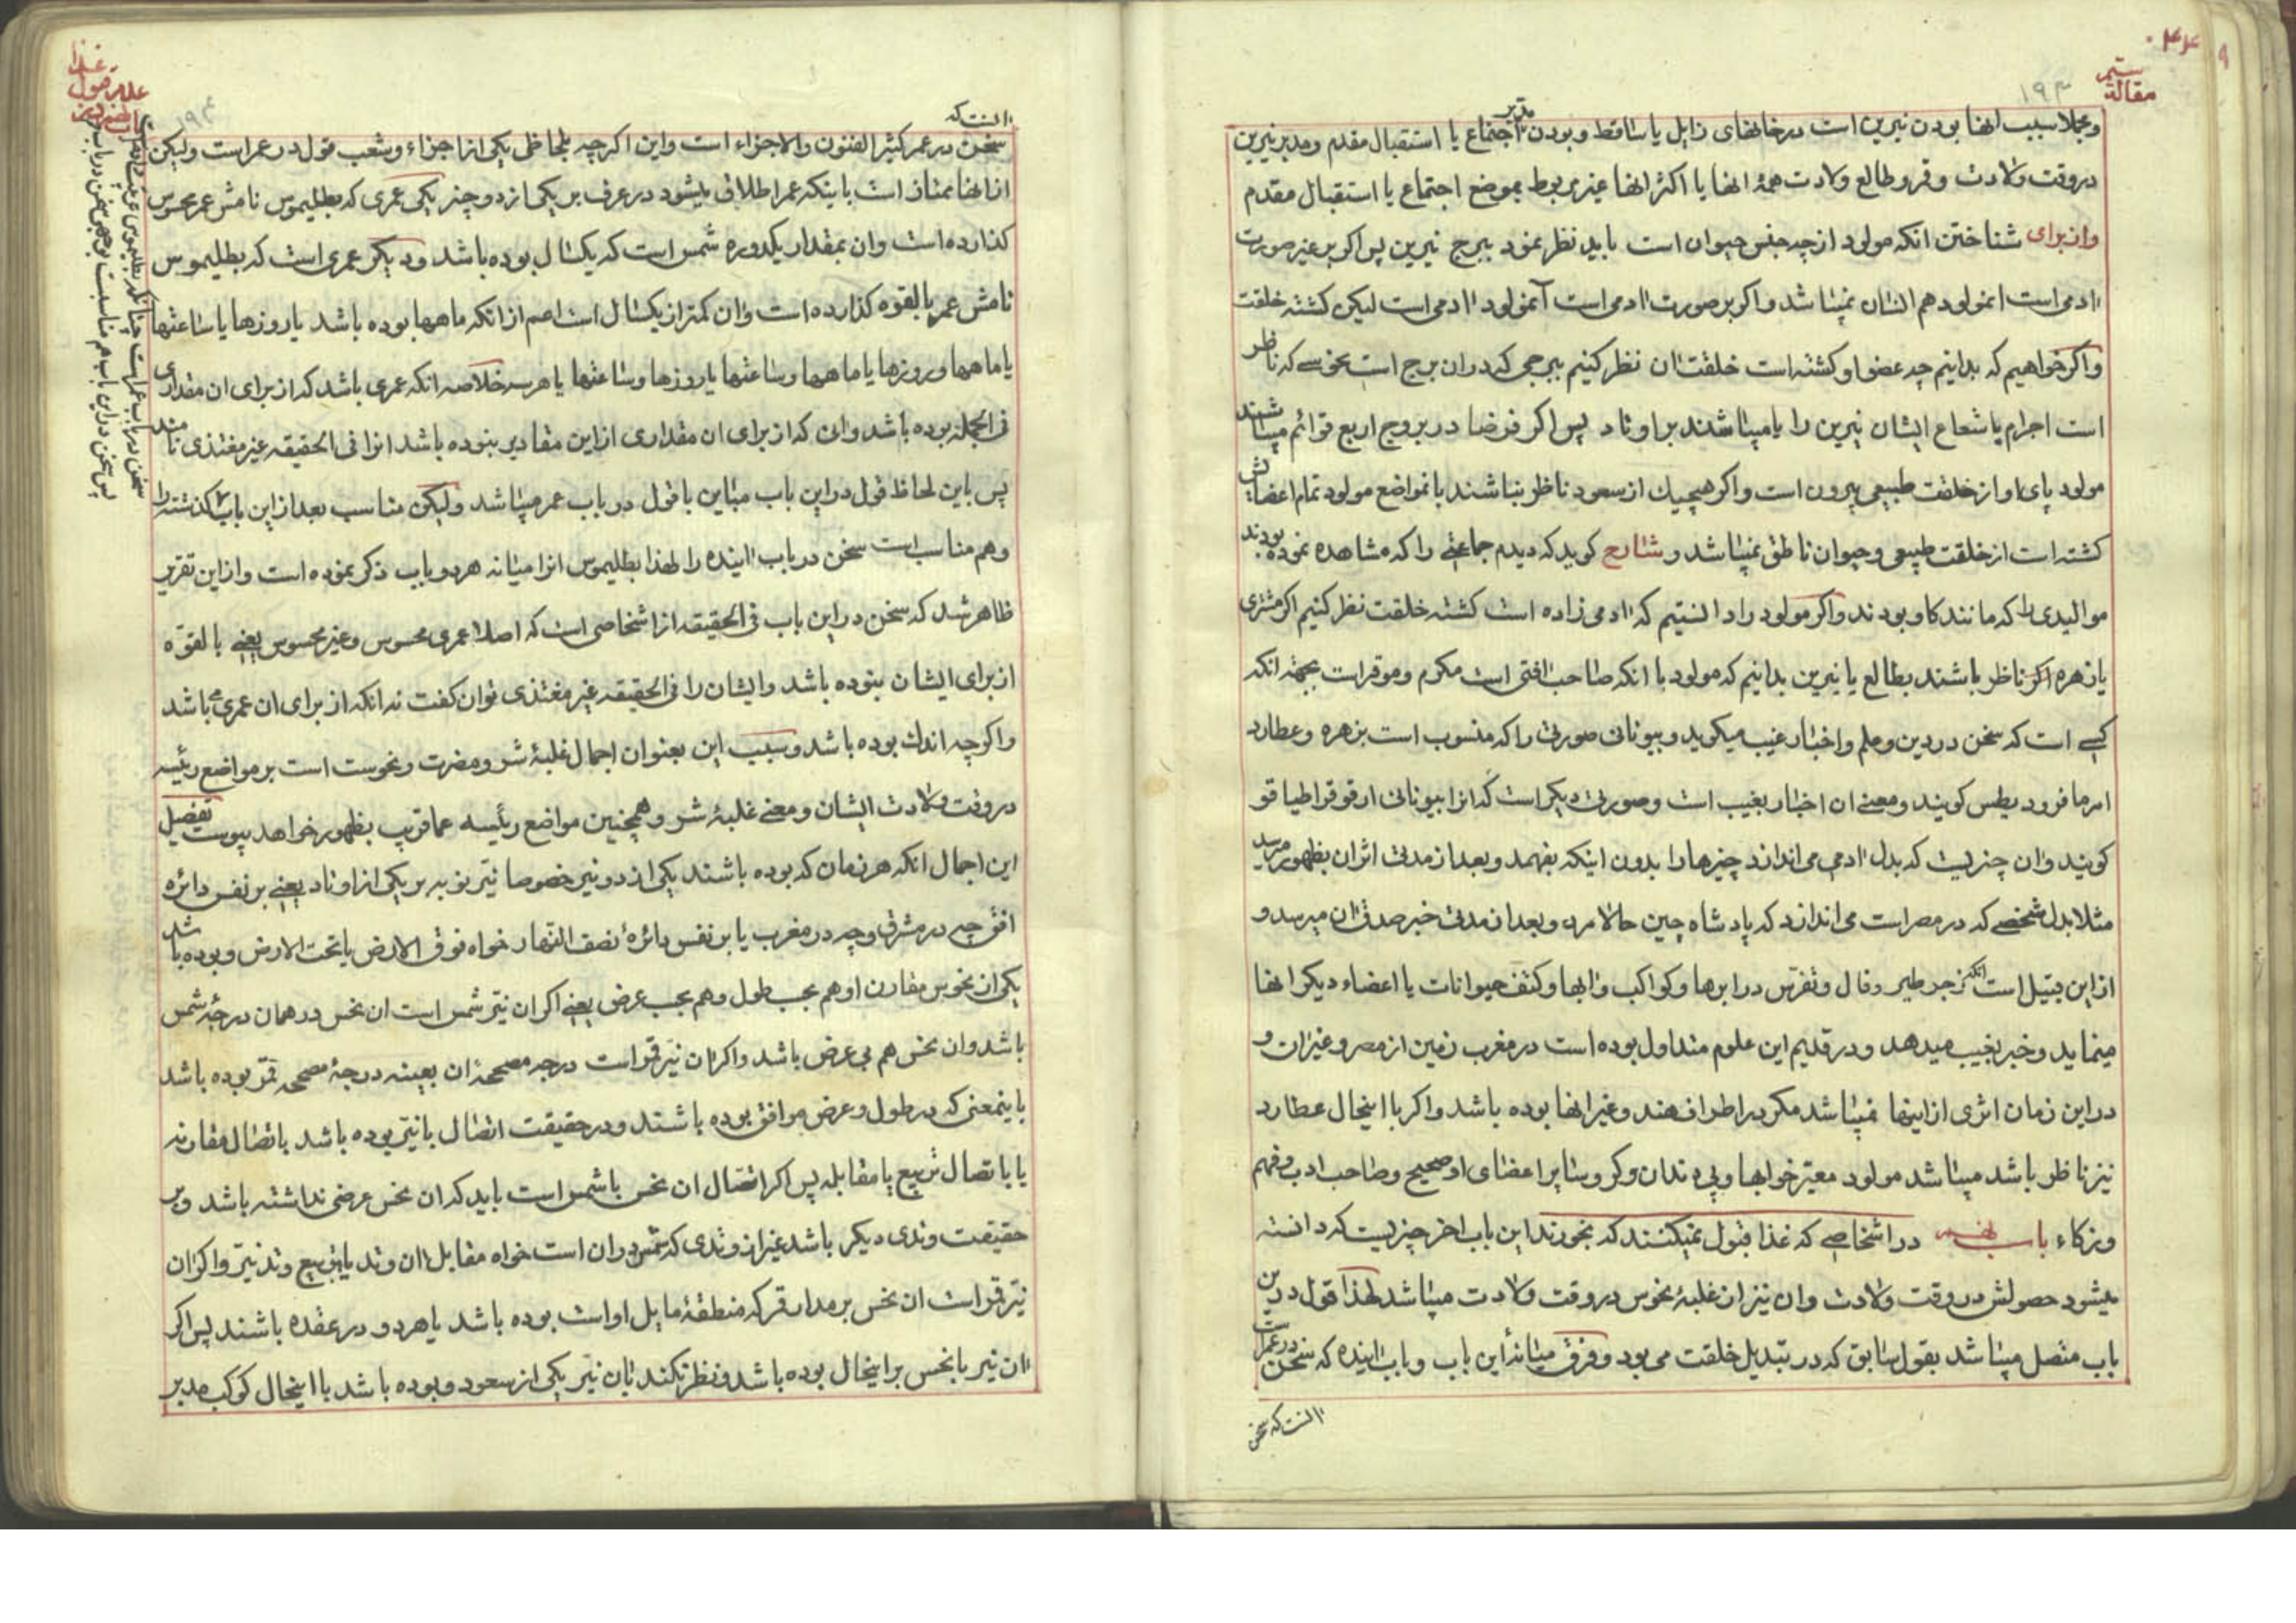 مقالة سیّم
۱۹۳
و مجملا سبب انها بودن نیرین است در خانهای زایل یا ساقط و بودن مدبر اجتماع یا استقبال مقدم و مدبر نیرین
در وقت ولادت و قمر و طالع ولادت همهٔ انها یا اکثر انها غیر مربوط بموضع اجتماع یا استقبال مقدم
و از برای شناختن انکه مولود از چه جنس حیوان است باید نظر نمود ببرج نیرین پس اکر بر غیر صورت
ادمی است انمولود هم انسان نمیباشد و اکر بر صورت ادمی است آنمولود ادمی است لیکن کشته خلقت
و اکر خواهیم که بدانیم چه عضو او کشته است خلقت ان نظر کنیم ببرجی که دران برج است نحوسی که ناظر
است اجرام یا شعاع ایشان نیرین را یا میباشند بر اوتاد پس اکر فرضا در بروج اربع قوائم میباشند
مولود پای او از خلقت طبیعی بیرون است و اکر هیچیك از سعود ناظر نباشند بانمواضع مولود تمام اعضایش
کشته است از خلقت طبیعی و حیوان ناطق نمیباشد و شارح کوید که دیدم جماعتی را که مشاهده نموده بودند
موالیدی را که مانند کاو بودند و اکر مولود را دانستیم که ادمی زاده است کشته خلقت نظر کنیم اکر مشتری
یا زهره اکر ناظر باشند بطالع یا نیرین بدانیم که مولود با انکه صاحب افتی است مکرم و موقر است بجهة انکه
کسی است که سخن در دین و علم و اخبار غیب میکوید و بیونانی صورتی را که منسوب است بزهره و عطارد
امرما فرود یطس کویند و معنی ان اخبار بغیب است و صورتی دیکر است که انرا بیونانی ارقوقراطیا قو
کویند وان چیزیست که بدل ادمی می اندازد چیزها را بدون اینکه بفهمد و بعد از مدتی اثر ان بظهور میرسد
مثلا بدل شخصی که در مصر است می اندازد که پادشاه چین حالا مرد و بعد از مدتی خبر صدق ان میرسد و
از این قبیل است انکه زجر طیر و فال و تفرس در ابرها و کواکب و ابها و کتف حیوانات یا اعضاء دیکر انها
مینماید و خبر بغیب میدهد و در قدیم این علوم متداول بوده است در مغرب زمین از مصر و غیر ان و
در این زمان اثری از اینها نمیباشد مکر در اطراف هند و غیر انها بوده باشد و اکر با اینحال عطارد
نیز ناظر باشد میباشد مولود معبر خوابها و بی دندان و کر و سایر اعضای او صحیح و صاحب ادب و فهم
و زکاء باب نهم در اشخاصی که غذا قبول نمیکنند که بخورند این باب اخر چیزیست که دانسته
میشود حصولش در وقت ولادت وان نیز از غلبهٔ نحوس در وقت ولادت میباشد لهذا قول در این
باب متصل میباشد بقول سابق که در تبدیل خلقت می بود و فرق میانهٔ این باب و باب اینده که سخن در عمر است
انست که سخن
۱۹۴
انست که
سخن در عمر کثیر الفنون والاجزاء است و این اکرچه بلحاظی یکی از اجزاء و شعب قول در عمر است ولیکن
از انها ممتاز است باینکه عمر اطلاق میشود در عرف بر یکی از دو چیز یکی عمری که بطلیموس نامش عمر محسوس
کذارده است وان بمقدار یکدوره شمس است که یکسال بوده باشد و دیکر عمری است که بطلیموس
نامش عمر بالقوه کذارده است وان کمتر از یکسال است اعم از انکه ماهها بوده باشد یا روزها یا ساعتها
یا ماهها و روزها یا ماهها و ساعتها یا روزها و ساعتها یا هر سه خلاصه انکه عمری باشد که از برای ان مقداری
فی الجمله بوده باشد وان که از برای ان مقداری از این مقادیر نبوده باشد انرا فی الحقیقه غیر مغتذی نامند
پس باین لحاظ قول در این باب مباین با قول در باب عمر میباشد ولیکن مناسب بعد از این باب کذشته را
و هم مناسب است سخن در باب اینده را لهذا بطلیموس انرا میانه هر دو باب ذکر نموده است و از این تقریر
ظاهر شد که سخن در این باب فی الحقیقه از اشخاصی است که اصلا عمری محسوس و غیر محسوس یعنی بالقوّه
از برای ایشان نبوده باشد و ایشان را فی الحقیقه غیر مغتذی توان کفت نه انکه از برای ان عمری باشد
و اکرچه اندك بوده باشد و سبب این بعنوان اجمال غلبهٔ شر و مضرت و نحوست است بر مواضع رئیسه
در وقت ولادت ایشان و معنی غلبهٔ شر و همچنین مواضع رئیسه عما قریب بظهور خواهد پیوست تفصیل
این اجمال انکه هر زمان که بوده باشند یکی از دو نیر خصوصا نیّر نوبه بر یکی از اوتاد یعنی بر نفس دائره
افق چه در مشرق و چه در مغرب یا بر نفس دائرهٔ نصف النهار خواه فوق الارض یا تحت الارض و بوده باشد
یکی از نحوس مقارن او هم بحسب طول و هم بحسب عرض یعنی اکر ان نیّر شمس است ان نحس در همان درجهٔ شمس
باشد وان نحس هم بی عرض باشد و اکر ان نیّر قمر است درجه مصححهٔ ان بعینه درجهٔ مصححه قمر بوده باشد
باینمعنی که در طول و عرض موافق بوده باشند و در حقیقت اتصال بانیّر بوده باشد باتصال مقارنه
یا باتصال تربیع یا مقابله پس اکر اتصال ان نحس با شمس است باید که ان نحس عرضی نداشته باشد و بر
حقیقت وتدی دیکر باشد غیر از وتدی که شمس دران است خواه مقابل ان وتد یا بتربیع وتد نیّر و اکر ان
نیّر قمر است ان نحس بر مدار قمر که منطقهٔ مایل او است بوده باشد یا هر دو در عقده باشند پس اکر
ان نیر با نحس بر اینحال بوده باشد و نظر نکند بان نیّر یکی از سعود و بوده باشد با اینحال کوکب مدبر
سخن در باب عمر است چنانکه بطلیموس
پس سخن در این باب هم مناسبت